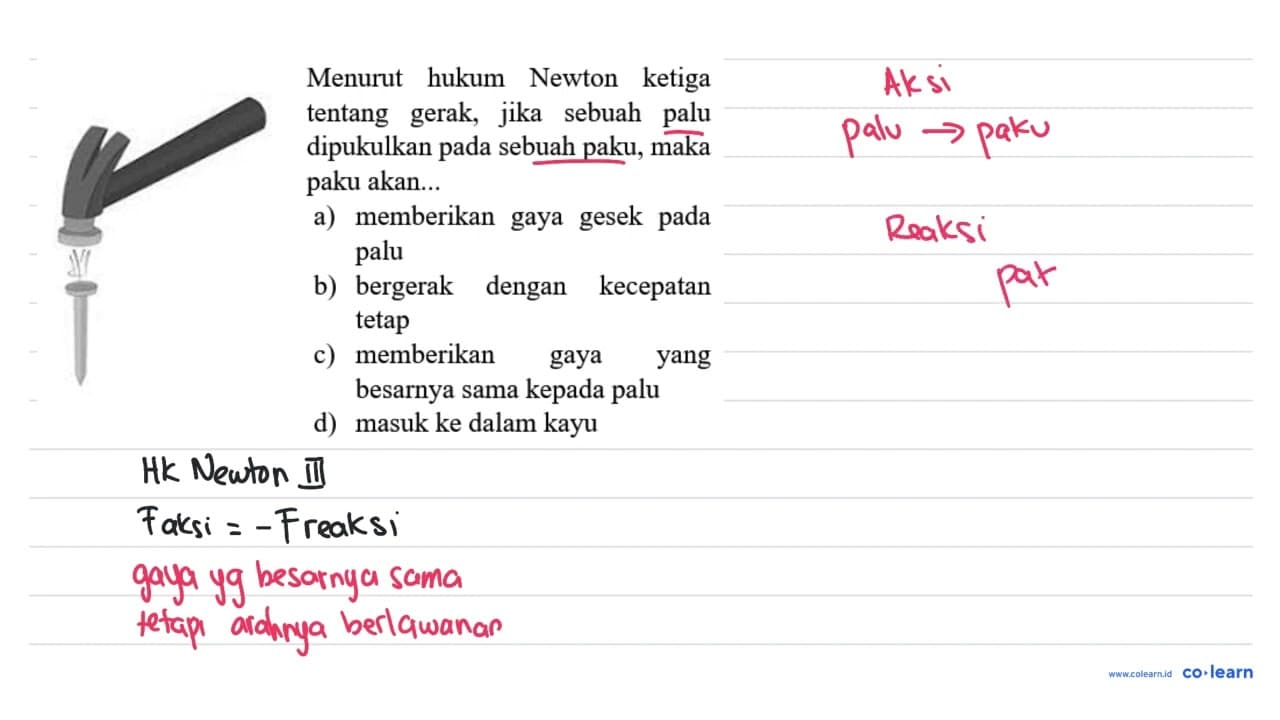 Menurut hukum Newton ketiga
tentang gerak, jika sebuah palu
dipukulkan pada sebuah paku, maka
paku akan...
a) memberikan gaya gesek pada
palu
b) bergerak dengan kecepatan
tetap
c) memberikan gaya yang
besarnya sama kepada palu
d) masuk ke dalam kayu
Aksi
palu → paku
Reaksi
pat
Hk Newton III
Faksi = -Freaksi
gaya yg besarnya sama
tetapi arahnya berlawanan
www.colearn.id co·learn